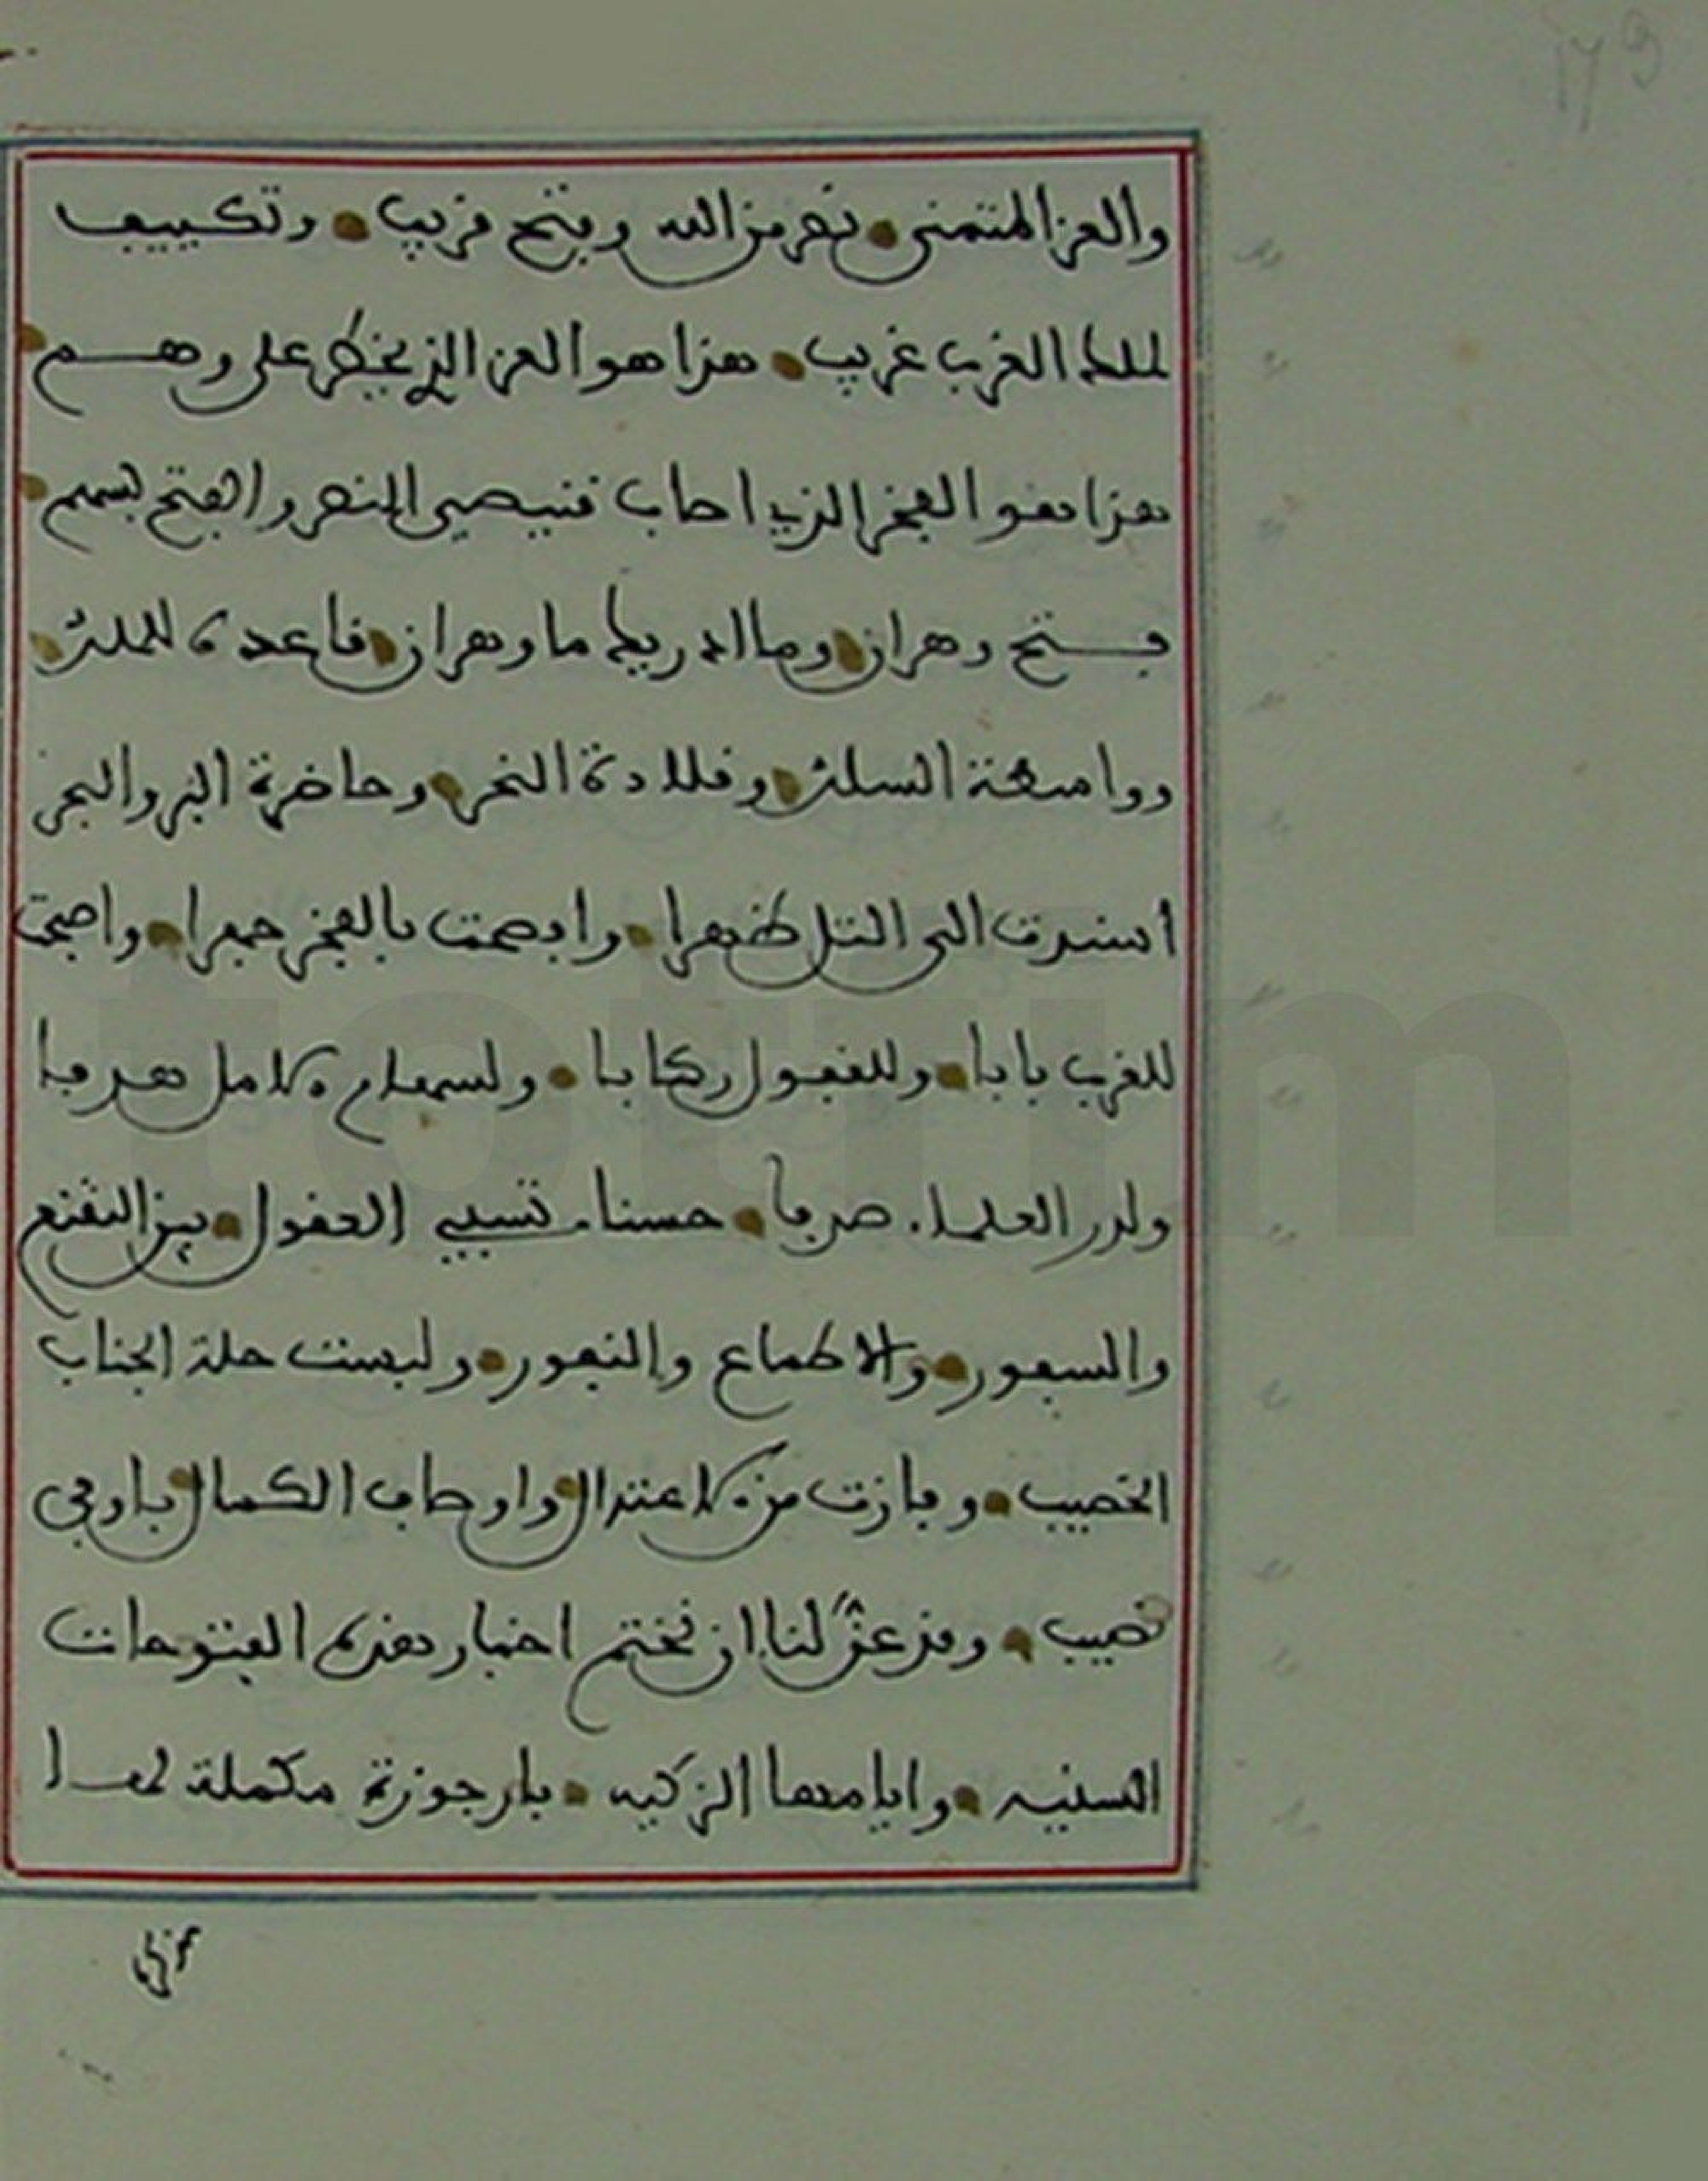 179
والعز المتمنى نصر من الله وفتح قريب وتكييف
لملك الغرب غريب هذا هو العز الذي يخطر على وهم
هذا هو الفخر الذي اصاب قنيصي النصر والفتح بسهم
فتح وهران وما ادريك ما وهران قاعدة الملك
وواسطة السلك وقلادة النحر وحاضرة البر والبحر
اسندت الى التل ظهرا وابصمت بالفخر جهرا واصبحت
للغرب بابا وللقفول ركابا ولسهام الامل هدفا
ولدر العلماء صدفا حسناء تسبي العقول بين التقنع
والسفور والاطماع والنفور ولبست حلة الجناب
الخصيب وفازت من الاعتدال واوصاف الكمال باوفى
نصيب وقد عنّ لنا ان نختم اخبار هذه الفتوحات
السنيه وايامها الزكيه بارجوزة مكملة لهـا